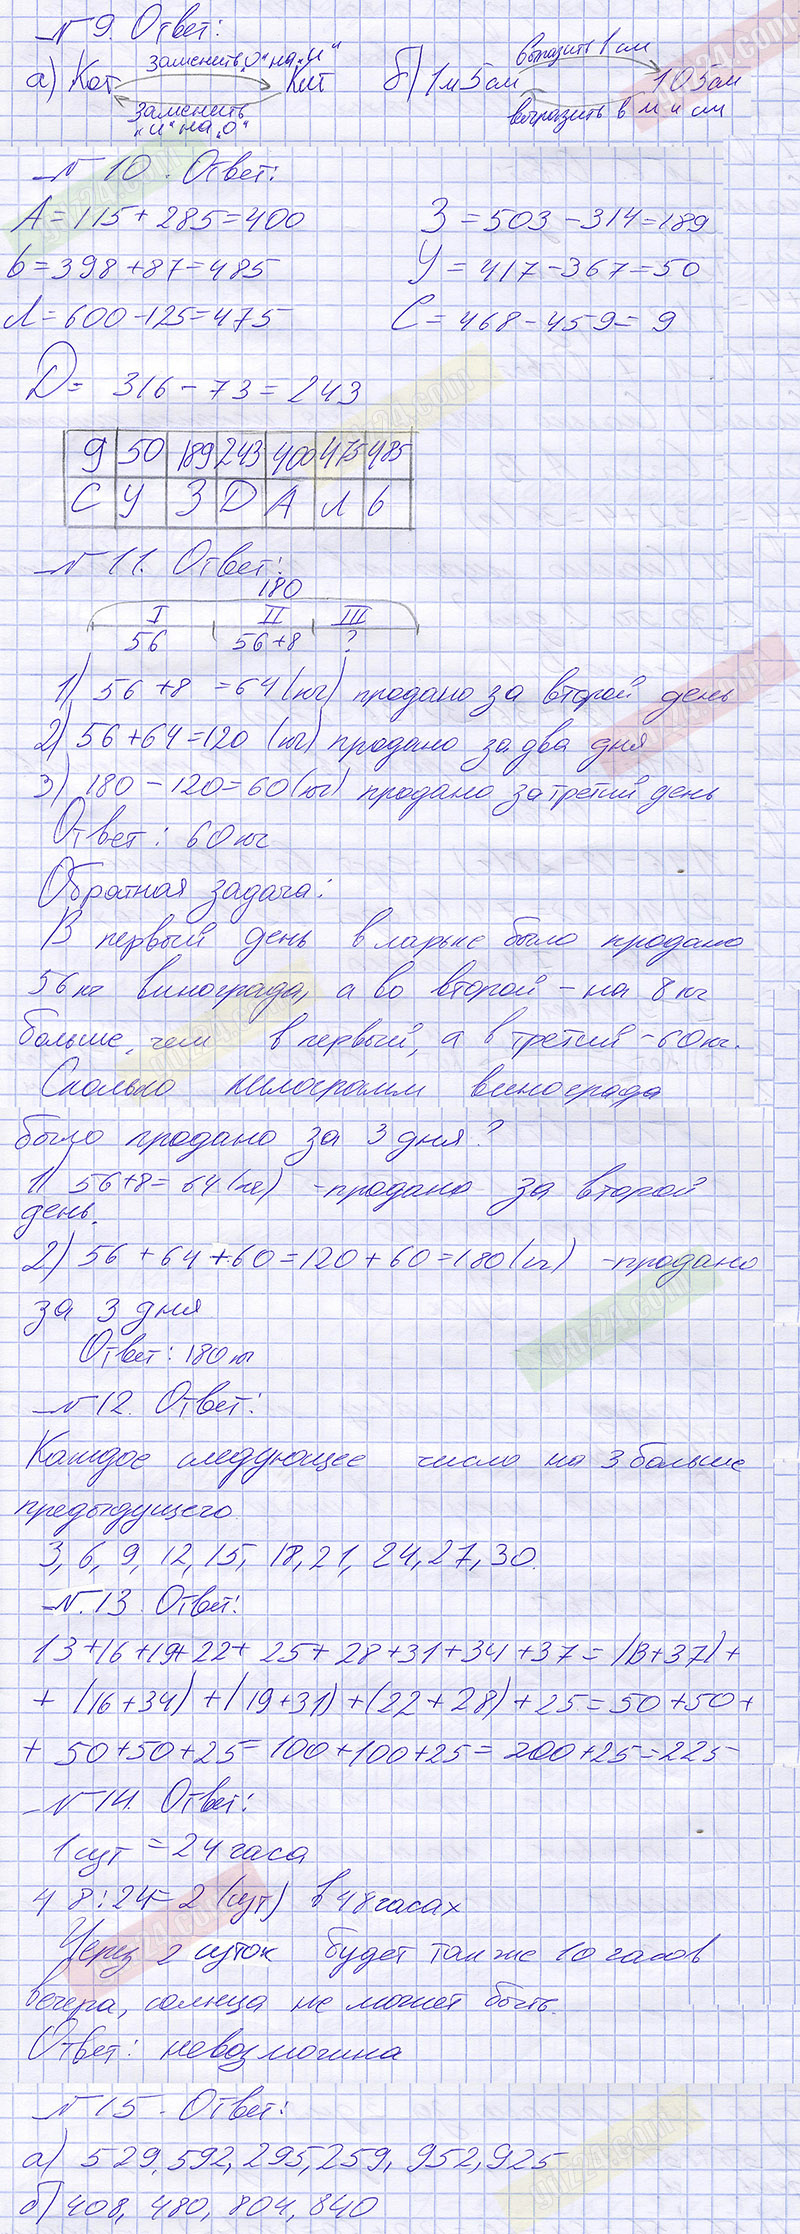 № 9. Ответ:
а) Кот заменить „о“ на „и“ Кит б) 1м 5см выразить в см 105см
заменить „и“ на „о“ выразить в м и см
№ 10. Ответ:
А = 115 + 285 = 400 З = 503 - 314 = 189
Ь = 398 + 87 = 485 У = 417 - 367 = 50
Л = 600 - 125 = 475 С = 468 - 459 = 9
Д = 316 - 73 = 243
9 50 189 243 400 475 485
С У З Д А Л Ь
№ 11. Ответ:
180
I II III
56 56+8 ?
1) 56 + 8 = 64 (кг) продано за второй день
2) 56 + 64 = 120 (кг) продано за два дня
3) 180 - 120 = 60 (кг) продано за третий день
Ответ: 60 кг
Обратная задача:
В первый день в ларьке было продано
56 кг винограда, а во второй - на 8 кг
больше, чем в первый, а в третий - 60 кг.
Сколько килограмм винограда
было продано за 3 дня?
1) 56+8 = 64 (кг) - продано за второй
день.
2) 56 + 64 + 60 = 120 + 60 = 180 (кг) - продано
за 3 дня
Ответ: 180 кг
№ 12. Ответ:
Каждое следующее число на 3 больше
предыдущего.
3, 6, 9, 12, 15, 18, 21, 24, 27, 30.
№ 13. Ответ:
13 + 16 + 19 + 22 + 25 + 28 + 31 + 34 + 37 = (13 + 37) +
+ (16 + 34) + (19 + 31) + (22 + 28) + 25 = 50 + 50 +
+ 50 + 50 + 25 = 100 + 100 + 25 = 200 + 25 = 225
№ 14. Ответ:
1 сут = 24 часа
48 : 24 = 2 (сут) в 48 часах
Через 2 суток будет также 10 часов
вечера, солнца не может быть.
Ответ: невозможна
№ 15. Ответ:
а) 529, 592, 295, 259, 952, 925
б) 408, 480, 804, 840